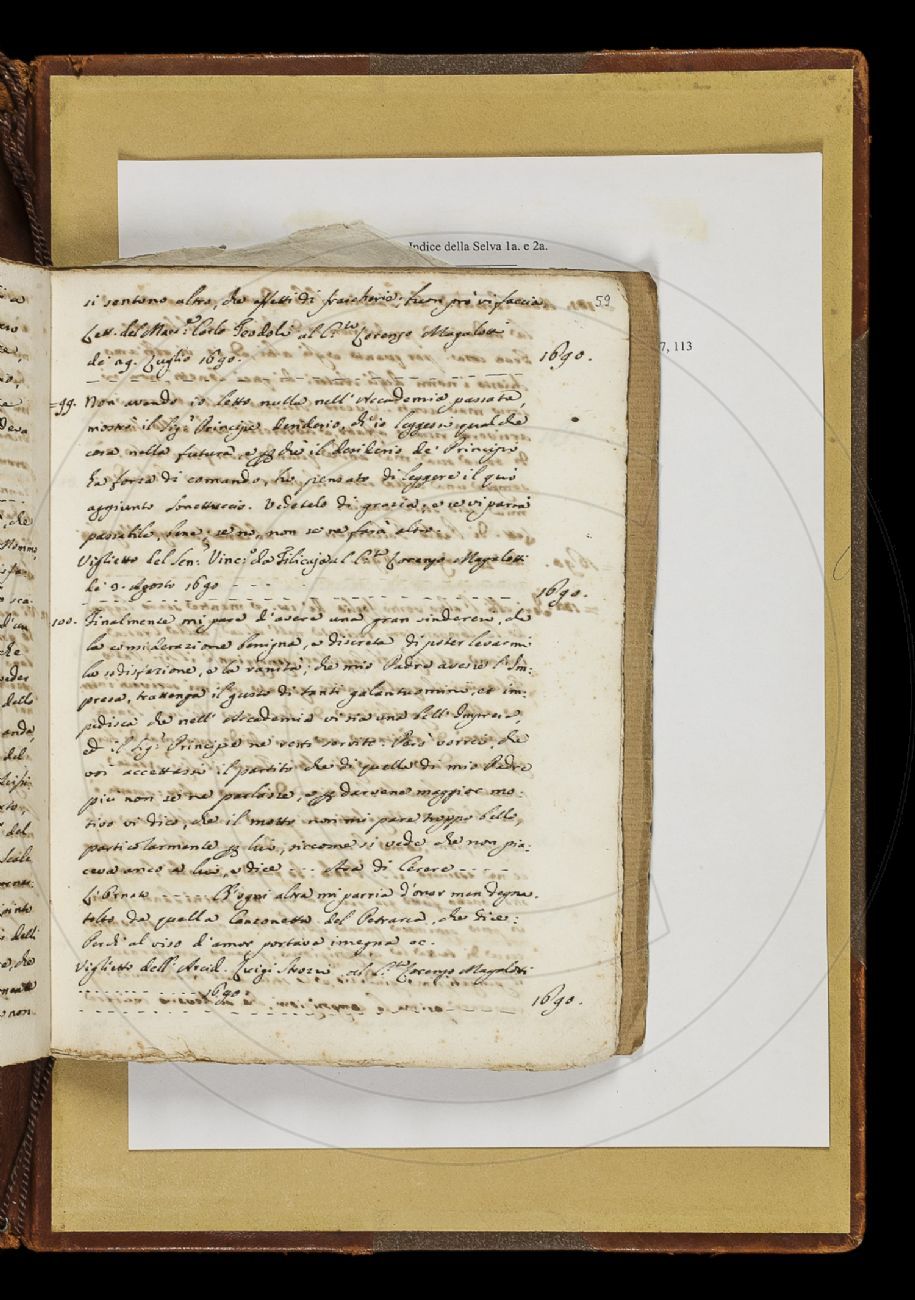 Indice della Selva 1a. e 2a.
7, 113
59
si sentono altro, che effetti di freschezza. buon prò vi faccia
Lett. del Mar. Carlo Teodoli al C.te Lorenzo Magalotti
de' 29. Luglio 1690.
1690.
=99. Non avendo io letto nulla nell' Accademia passata,
mostrò il Sig.r Principe desiderio, ch' io leggessi qualche
cosa nella futura, e perchè il desiderio de' Principi
ha forza di comando, ho pensato di leggere il quì
aggiunto Sonettuccio. Vedetelo di grazia, e se vi parrà
passabile, bene, se no, non se ne farà altro.
Viglietto del Sen.r Vinc.o da Filicaja al C.te Lorenzo Magalotti
de' 9. Agosto 1690
1690.
100. Finalmente mi pare d'avere una gran sinderesi, che
la considerazione benigna, e discreta di poter levarmi
la sodisfazione, e la vanità, che mio Padre avesse l'Im-
presa, trattenga il gusto di tanti galantuomini, ed im-
pedisca che nell' Accademia vi sia una bell' Impresa,
ed il Sig.r Principe ne resti servito. Però vorrei, che
voi accettassi il partito che di quella di mio Padre
più non se ne parlasse, e per darvene maggior mo-
tivo vi dico, che il motto non mi pare troppo bello,
particolarmente per lui, siccome si vede che non pia-
ceva anco a lui, e dice --- Area di Cerere ----
Libérata ----- Ch' ogni altra mi parria d'onor men degna.
tolto da quella Canzonetta del Petrarca, che dice:
Perch' al viso d'amor portava insegna ec.
Viglietto dell' Arcid. Luigi Strozzi al C.te Lorenzo Magalotti
1690.
1690.